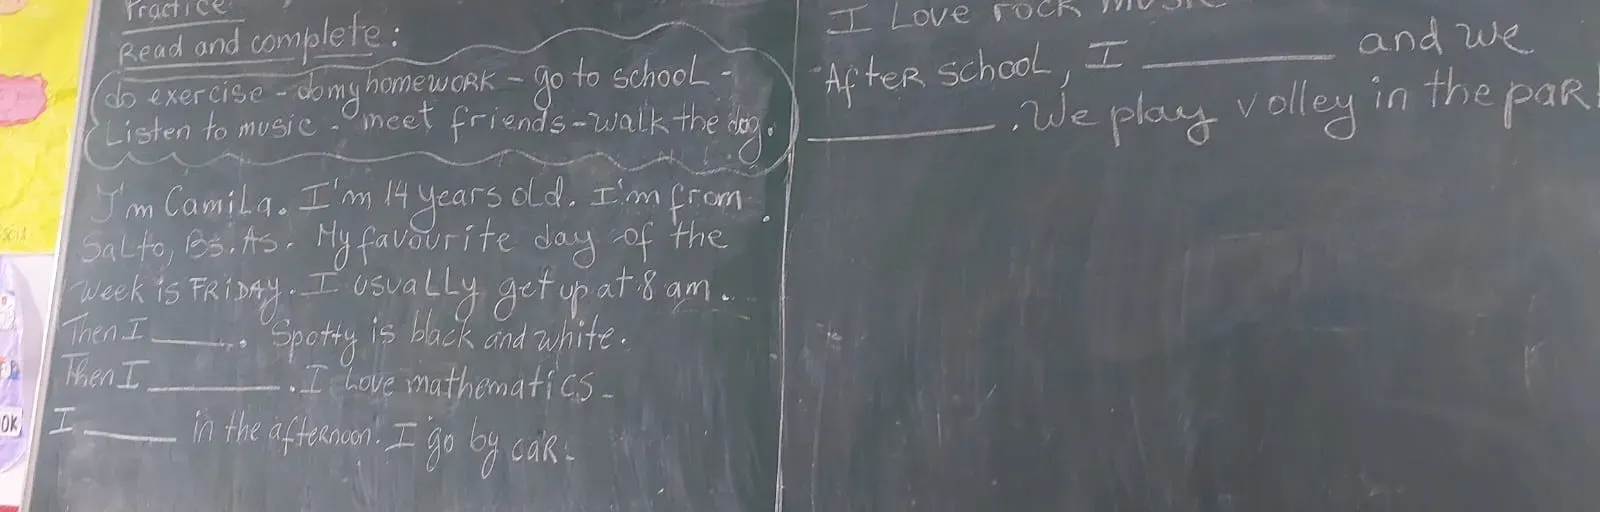 Practice:
Read and complete:
do exercise - do my homework - go to school -
Listen to music - meet friends - walk the dog.
I'm Camila. I'm 14 years old. I'm from
Salto, Bs. As. My favourite day of the
week is FRIDAY. I usually get up at 8 am.
Then I ______. Spotty is black and white.
Then I ________. I love mathematics.
I ______ in the afternoon. I go by car.
I Love rock music
After school, I ________ and we
________. We play volley in the par
OK